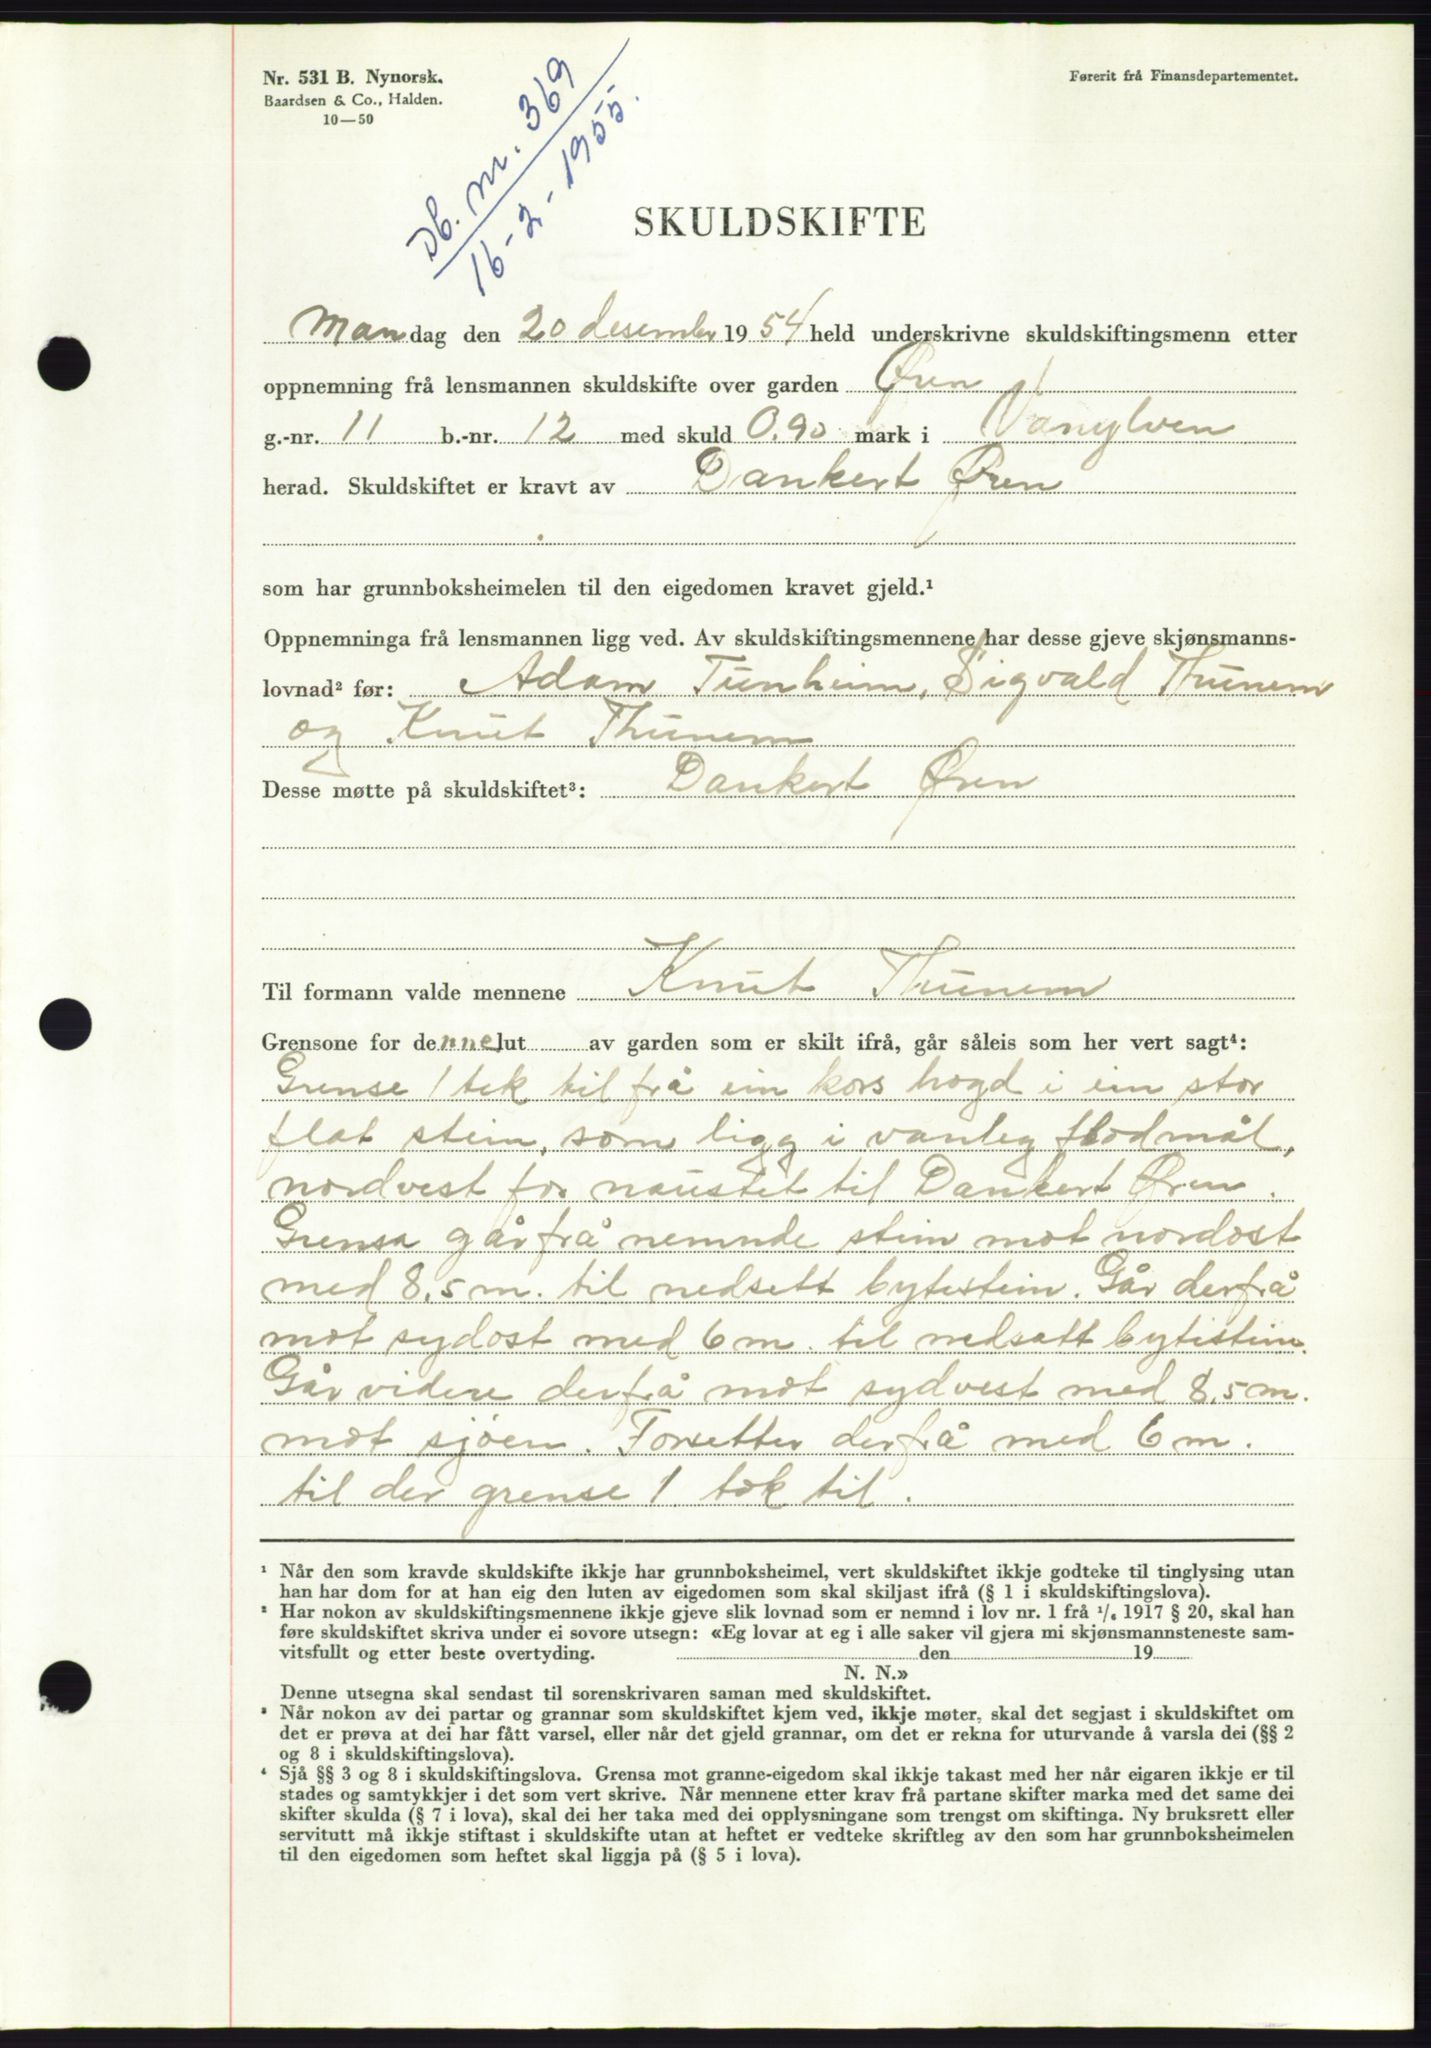 Nr. 531 B. Nynorsk.
Baardsen & Co., Halden.
10—50
Førerit frå Finansdepartementet.
Db. nr. 369
16-2-1955.
SKULDSKIFTE
Mandag den 20 desember 1954 held underskrivne skuldskiftingsmenn etter
oppnemning frå lensmannen skuldskifte over garden Øren
g.-nr. 11 b.-nr. 12 med skuld 0.90 mark i Vanylven
herad. Skuldskiftet er kravt av Dankert Øren
som har grunnboksheimelen til den eigedomen kravet gjeld.¹
Oppnemninga frå lensmannen ligg ved. Av skuldskiftingsmennene har desse gjeve skjønsmanns-
lovnad² før: Adam Tunheim, Sigvald Thunem
og Knut Thunem
Desse møtte på skuldskiftet³: Dankert Øren
Til formann valde mennene Knut Thunem
Grensone for denne lut av garden som er skilt ifrå, går såleis som her vert sagt⁴:
Grense 1 tek til frå ein kors hogd i ein stor
flat stein, som ligg i vanleg flodmål,
nordvest for naustet til Dankert Øren.
Grensa går frå nemnde stein mot nordost
med 8,5 m. til nedsett bytestein. Går derfrå
mot sydost med 6 m. til nedsatt bytistein.
Går videre derfrå mot sydvest med 8,5 m.
mot sjøen. Forsetter derfrå med 6 m.
til der grense 1 tok til.
¹ Når den som kravde skuldskifte ikkje har grunnboksheimel, vert skuldskiftet ikkje godteke til tinglysing utan
han har dom for at han eig den luten av eigedomen som skal skiljast ifrå (§ 1 i skuldskiftingslova).
² Har nokon av skuldskiftingsmennene ikkje gjeve slik lovnad som er nemnd i lov nr. 1 frå ¹/₆ 1917 § 20, skal han
føre skuldskiftet skriva under ei sovore utsegn: «Eg lovar at eg i alle saker vil gjera mi skjønsmannsteneste sam-
vitsfullt og etter beste overtyding. den 19
N. N.»
Denne utsegna skal sendast til sorenskrivaren saman med skuldskiftet.
³ Når nokon av dei partar og grannar som skuldskiftet kjem ved, ikkje møter, skal det segjast i skuldskiftet om
det er prøva at dei har fått varsel, eller når det gjeld grannar, om det er rekna for uturvande å varsla dei (§§ 2
og 8 i skuldskiftingslova).
⁴ Sjå §§ 3 og 8 i skuldskiftingslova. Grensa mot granne-eigedom skal ikkje takast med her når eigaren ikkje er til
stades og samtykkjer i det som vert skrive. Når mennene etter krav frå partane skifter marka med det same dei
skifter skulda (§ 7 i lova), skal dei her taka med dei opplysningane som trengst om skiftinga. Ny bruksrett eller
servitutt må ikkje stiftast i skuldskifte utan at heftet er vedteke skriftleg av den som har grunnboksheimelen
til den eigedomen som heftet skal liggja på (§ 5 i lova).